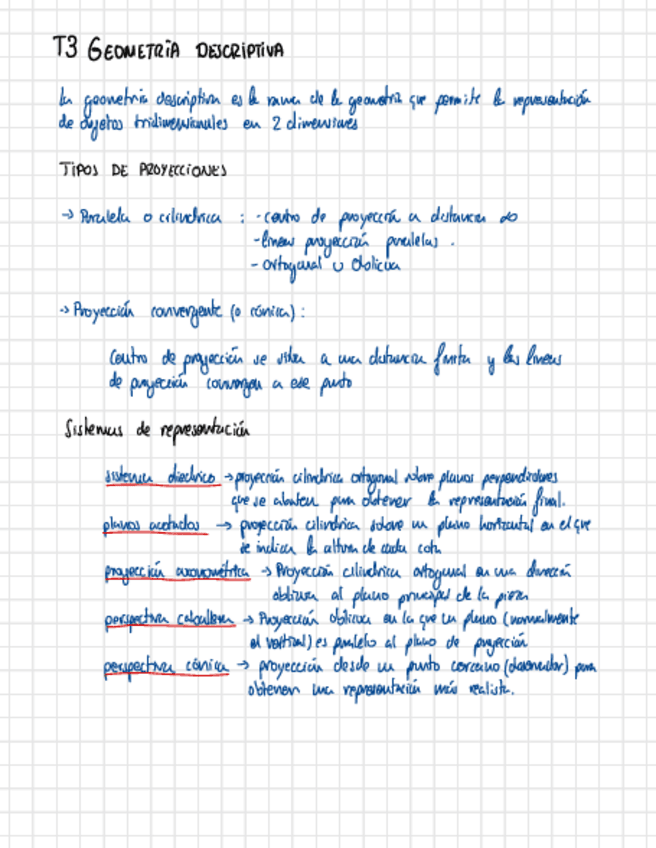 T3 GEOMETRÍA DESCRIPTIVA
La geometría descriptiva es la rama de la geometría que permite la representación
de objetos tridimensionales en 2 dimensiones
TIPOS DE PROYECCIONES
→ Paralela o cilíndrica : - centro de proyección a distancia ∞
- líneas proyección paralelas .
- ortogonal u oblicua
→ Proyección convergente (o cónica) :
Centro de proyección se sitúa a una distancia finita y las líneas
de proyección convergen a ese punto
Sistemas de representación
sistema diédrico → proyección cilíndrica ortogonal sobre planos perpendiculares
que se abaten para obtener la representación final.
planos acotados → proyección cilíndrica sobre un plano horizontal en el que
se indica la altura de cada cota
proyección axonométrica → Proyección cilíndrica ortogonal en una dirección
oblicua al plano principal de la pieza
perspectiva caballera → Proyección oblicua en la que un plano (normalmente
el vertical) es paralelo al plano de proyección
perspectiva cónica → proyección desde un punto cercano (observador) para
obtener una representación más realista.